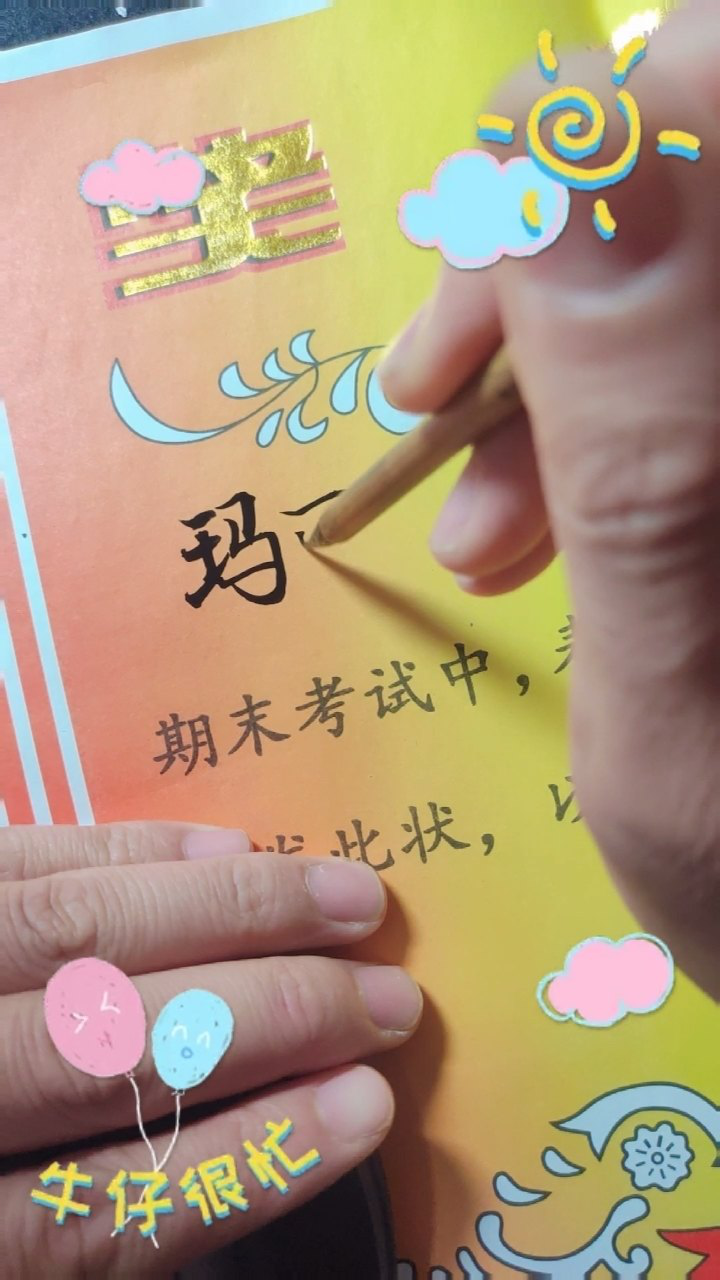 奖
玛
期末考试中，
发此状，以
牛仔很忙